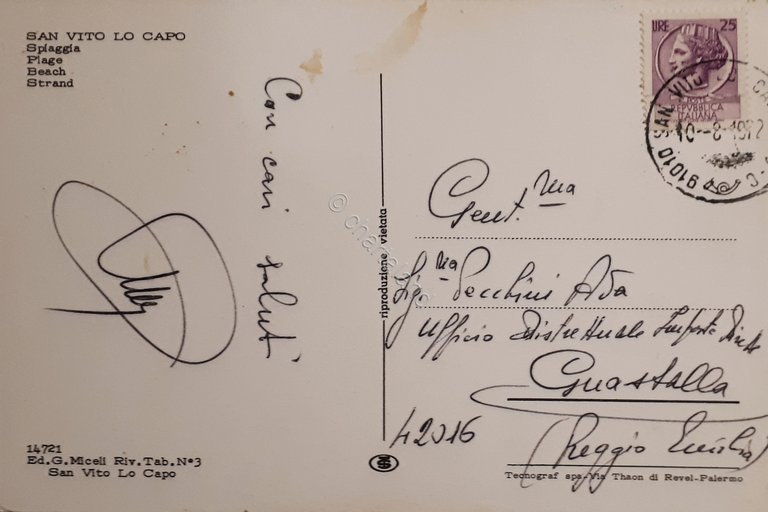 SAN VITO LO CAPO
Spiaggia
Plage
Beach
Strand
Con cari saluti
14721
Ed.G.Miceli Riv.Tab.N°3
San Vito Lo Capo
riproduzione vietata
LIRE 25
POSTE
REPVBBLICA
ITALIANA
91010 SAN VITO LO CA
10-8-1972
Gent.ma
Sig.na Pecchini Ada
Ufficio Distrettuale Imposte Dirette
Guastalla
42016 (Reggio Emilia)
Tecnograf spa-Via Thaon di Revel-Palermo